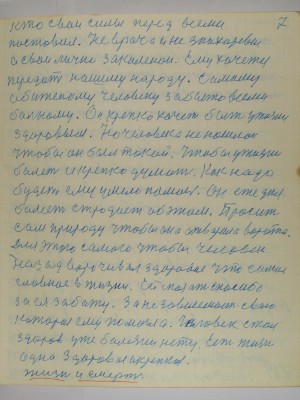 7
кто свои силы перед всеми
поставил. Не врача и не знахаря он
а свои лично закалений. Ему хочется
передать нашему народу. Самому
обиженому человеку забытому всеми
больному. Он крепко хочет быть у жизни
здоровым. Но человек не помогал
чтобы он был такой. Чтобы у жизни
болеть и крепко думать. Как надо
будет ему умело помощь. Он еже дня
болеет страдает об этом. Просит
сам природу чтобы она открыла ворота
для этого самого чтобы человек
назад ворочивал здоровье что самое
главное в жизни. Скажет спасибо
за ея заботу. За независимость свою
которая ему помогла. Человек стал
здоров уже болезни нету, есть жизнь
одна здоровая крепкая.
жизни и смерть.